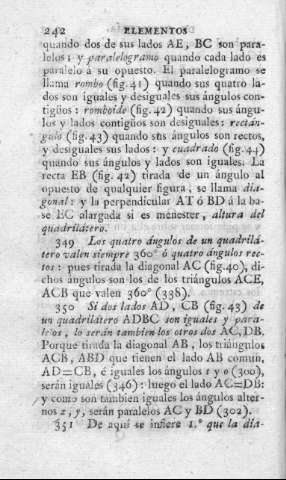 242 ELEMENTOS
quando dos de sus lados AE, BC son para-
lelos: y paralelogramo quando cada lado es
paralelo á su opuesto. El paralelogramo se
llama rombo (fig. 41) quando sus quatro la-
dos son iguales y desiguales sus ángulos con-
tigüos: romboide (fig. 42) quando sus ángu-
los y lados contigüos son desiguales: rectán-
gulo (fig. 43) quando sus ángulos son rectos,
y desiguales sus lados: y cuadrado (fig. 44)
quando sus ángulos y lados son iguales. La
recta EB (fig. 42) tirada de un ángulo al
opuesto de qualquier figura, se llama dia-
gonal: y la perpendicular AT ó BD á la ba-
se BC alargada si es menester, altura del
quadrilátero.
349 Los quatro ángulos de un quadrilá-
tero valen siempre 360° ó quatro ángulos rec-
tos: pues tirada la diagonal AC (fig. 40), di-
chos ángulos son los de los triángulos ACE,
ACB que valen 360° (338).
350 Si dos lados AD, CB (fig. 43) de
un quadrilátero ADBC son iguales y para-
lelos, lo serán tambien los otros dos AC, DB.
Porque tirada la diagonal AB, los triángulos
ACB, ABD que tienen el lado AB comun,
AD=CB, é iguales los ángulos s y o (300),
serán iguales (346): luego el lado AC=DB:
y como son tambien iguales los ángulos alter-
nos x, y, serán paralelos AC y BD (302).
351 De aquí se infiere 1.° que la dia-